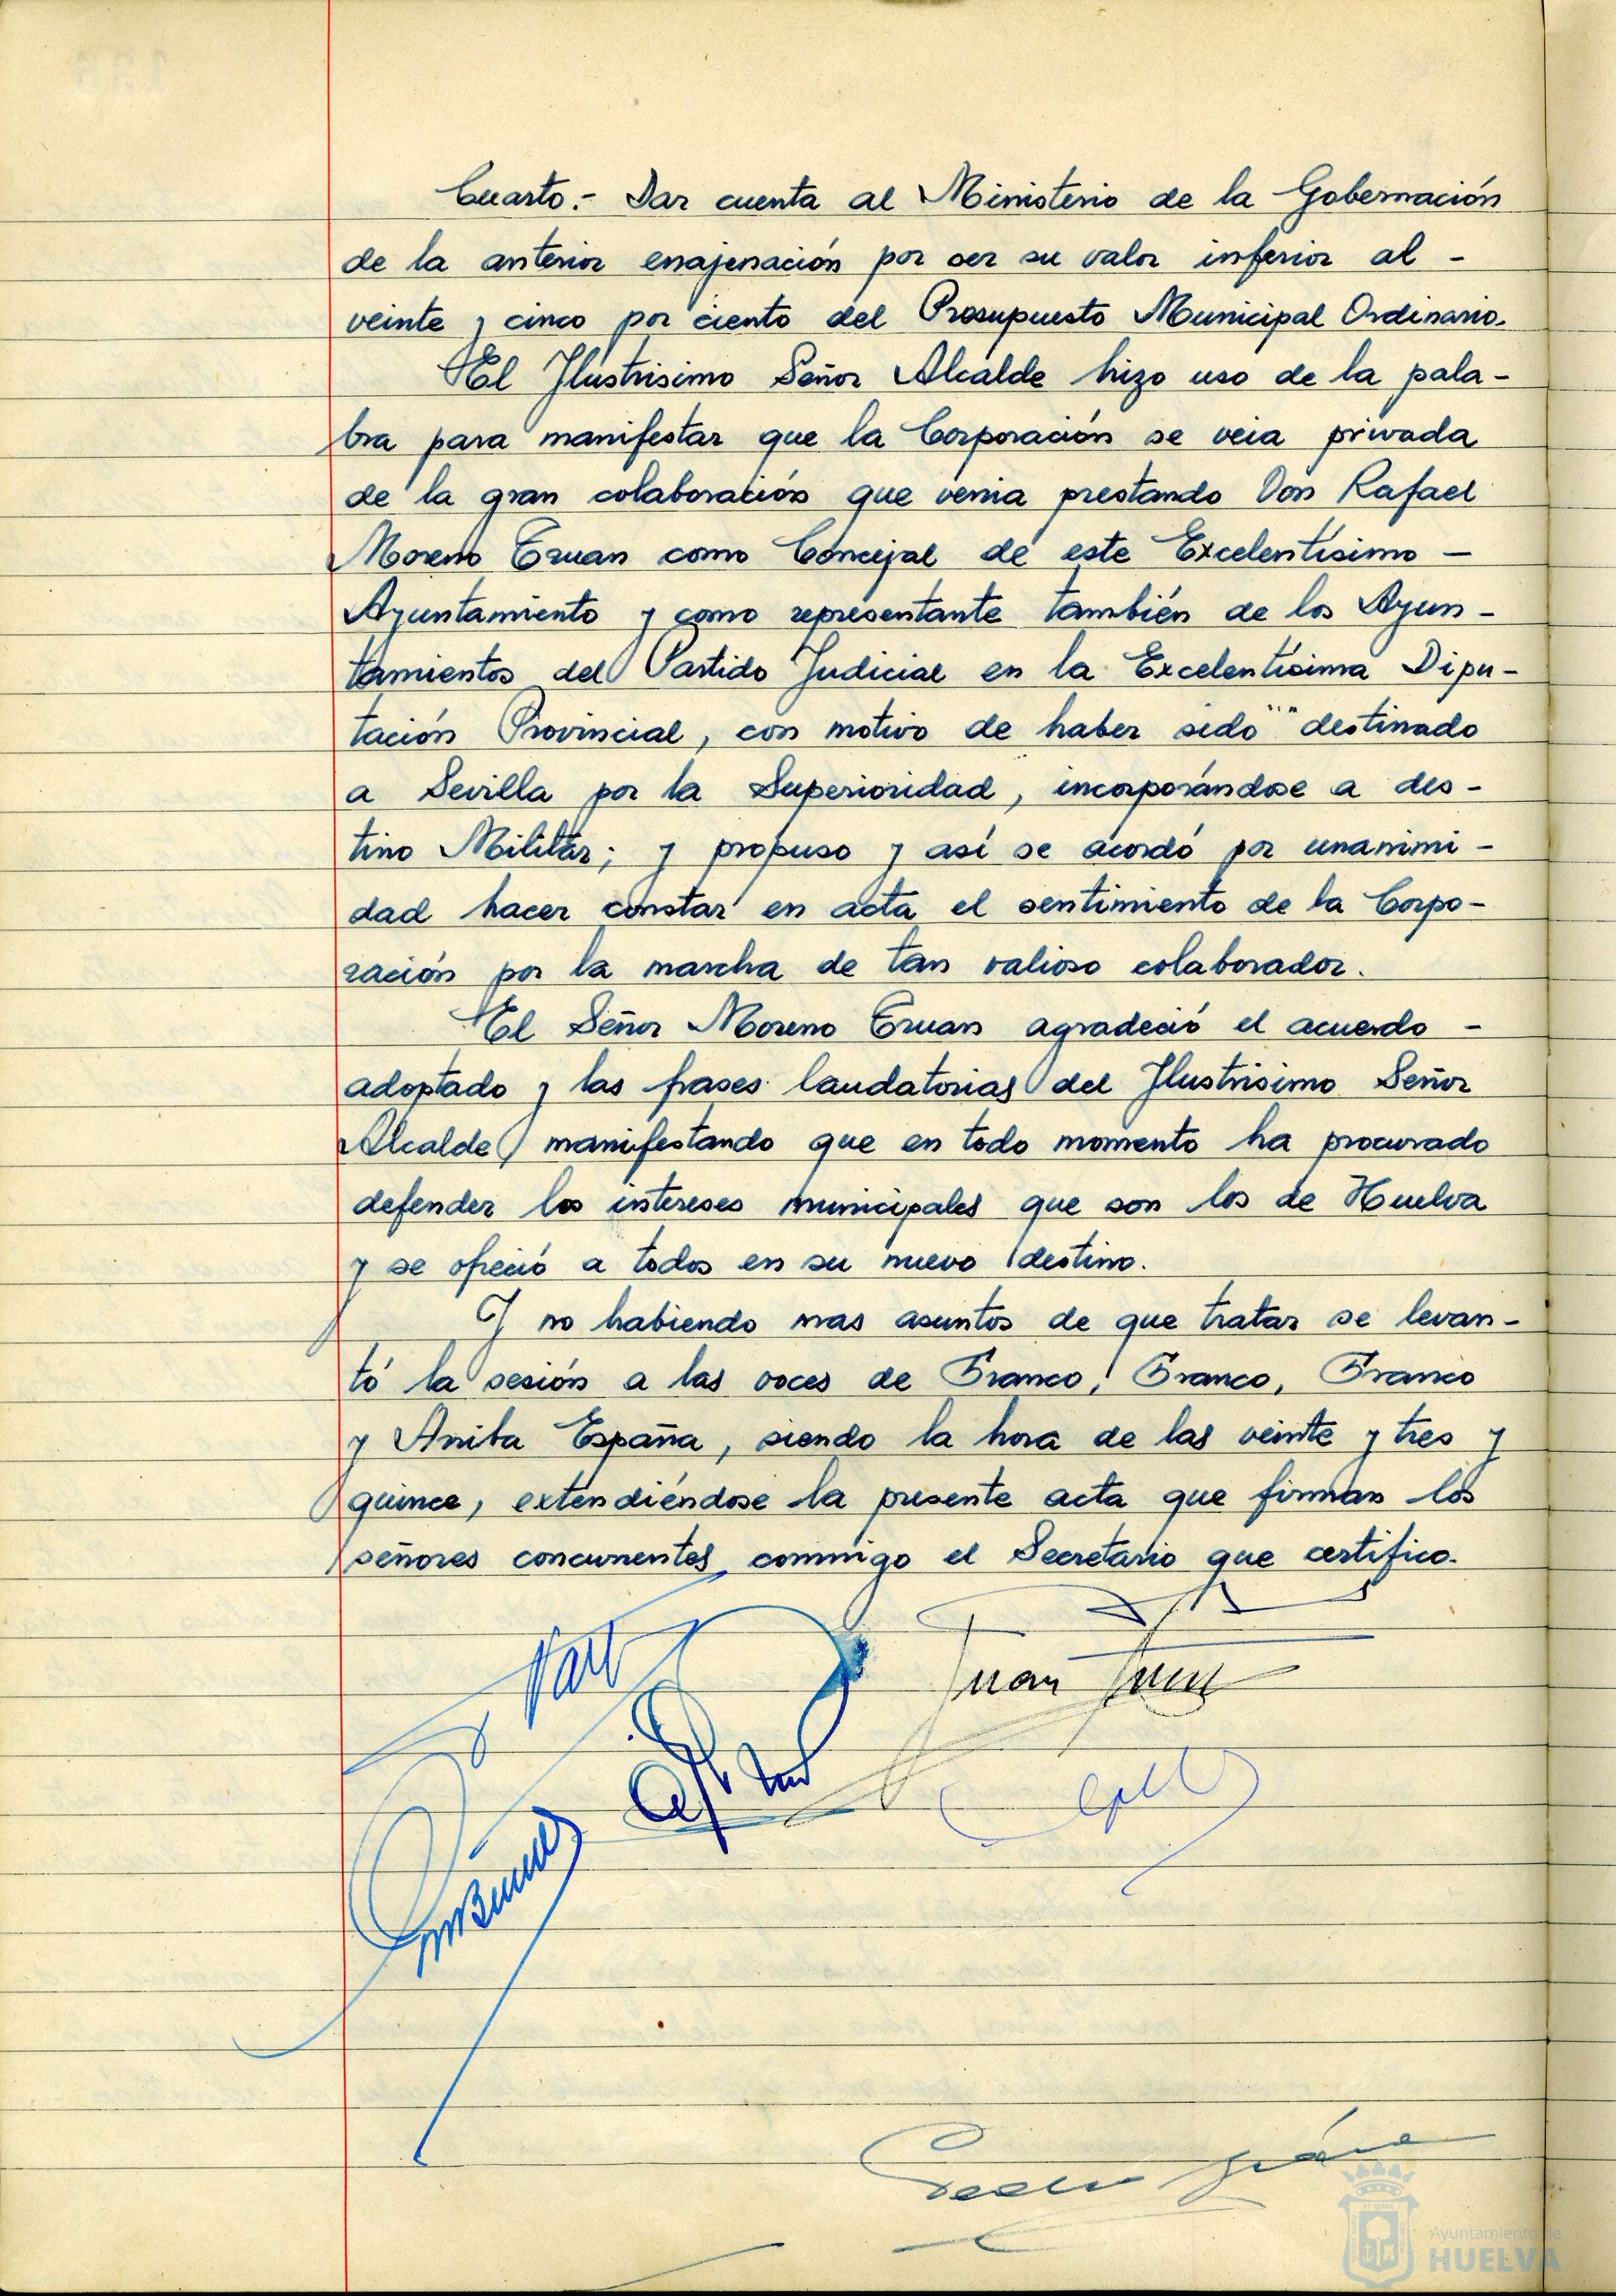 Cuarto.- Dar cuenta al Ministerio de la Gobernación
de la anterior enajenación por ser su valor inferior al -
veinte y cinco por ciento del Presupuesto Municipal Ordinario.
El Ilustrisimo Señor Alcalde hizo uso de la pala-
bra para manifestar que la Corporación se veia privada
de la gran colaboración que venia prestando Don Rafael
Moreno Eruan como Concejal de este Excelentisimo -
Ayuntamiento y como representante también de los Ayun-
tamientos del Partido Judicial en la Excelentisima Dipu-
tación Provincial, con motivo de haber sido destinado
a Sevilla por la Superioridad, incorporándose a des-
tino Militar; y propuso y así se acordó por unanimi-
dad hacer constar en acta el sentimiento de la Corpo-
ración por la marcha de tan valioso colaborador.
El Señor Moreno Eruan agradeció el acuerdo -
adoptado y las frases laudatorias del Ilustrisimo Señor
Alcalde manifestando que en todo momento ha procurado
defender los intereses municipales que son los de Huelva
y se ofreció a todos en su nuevo destino.
Y no habiendo mas asuntos de que tratar se levan-
tó la sesión a las voces de Franco, Franco, Franco
y Arriba España, siendo la hora de las veinte y tres y
quince, extendiéndose la presente acta que firman los
señores concurrentes conmigo el Secretario que certifico.
Juan
Ayuntamiento de
HUELVA